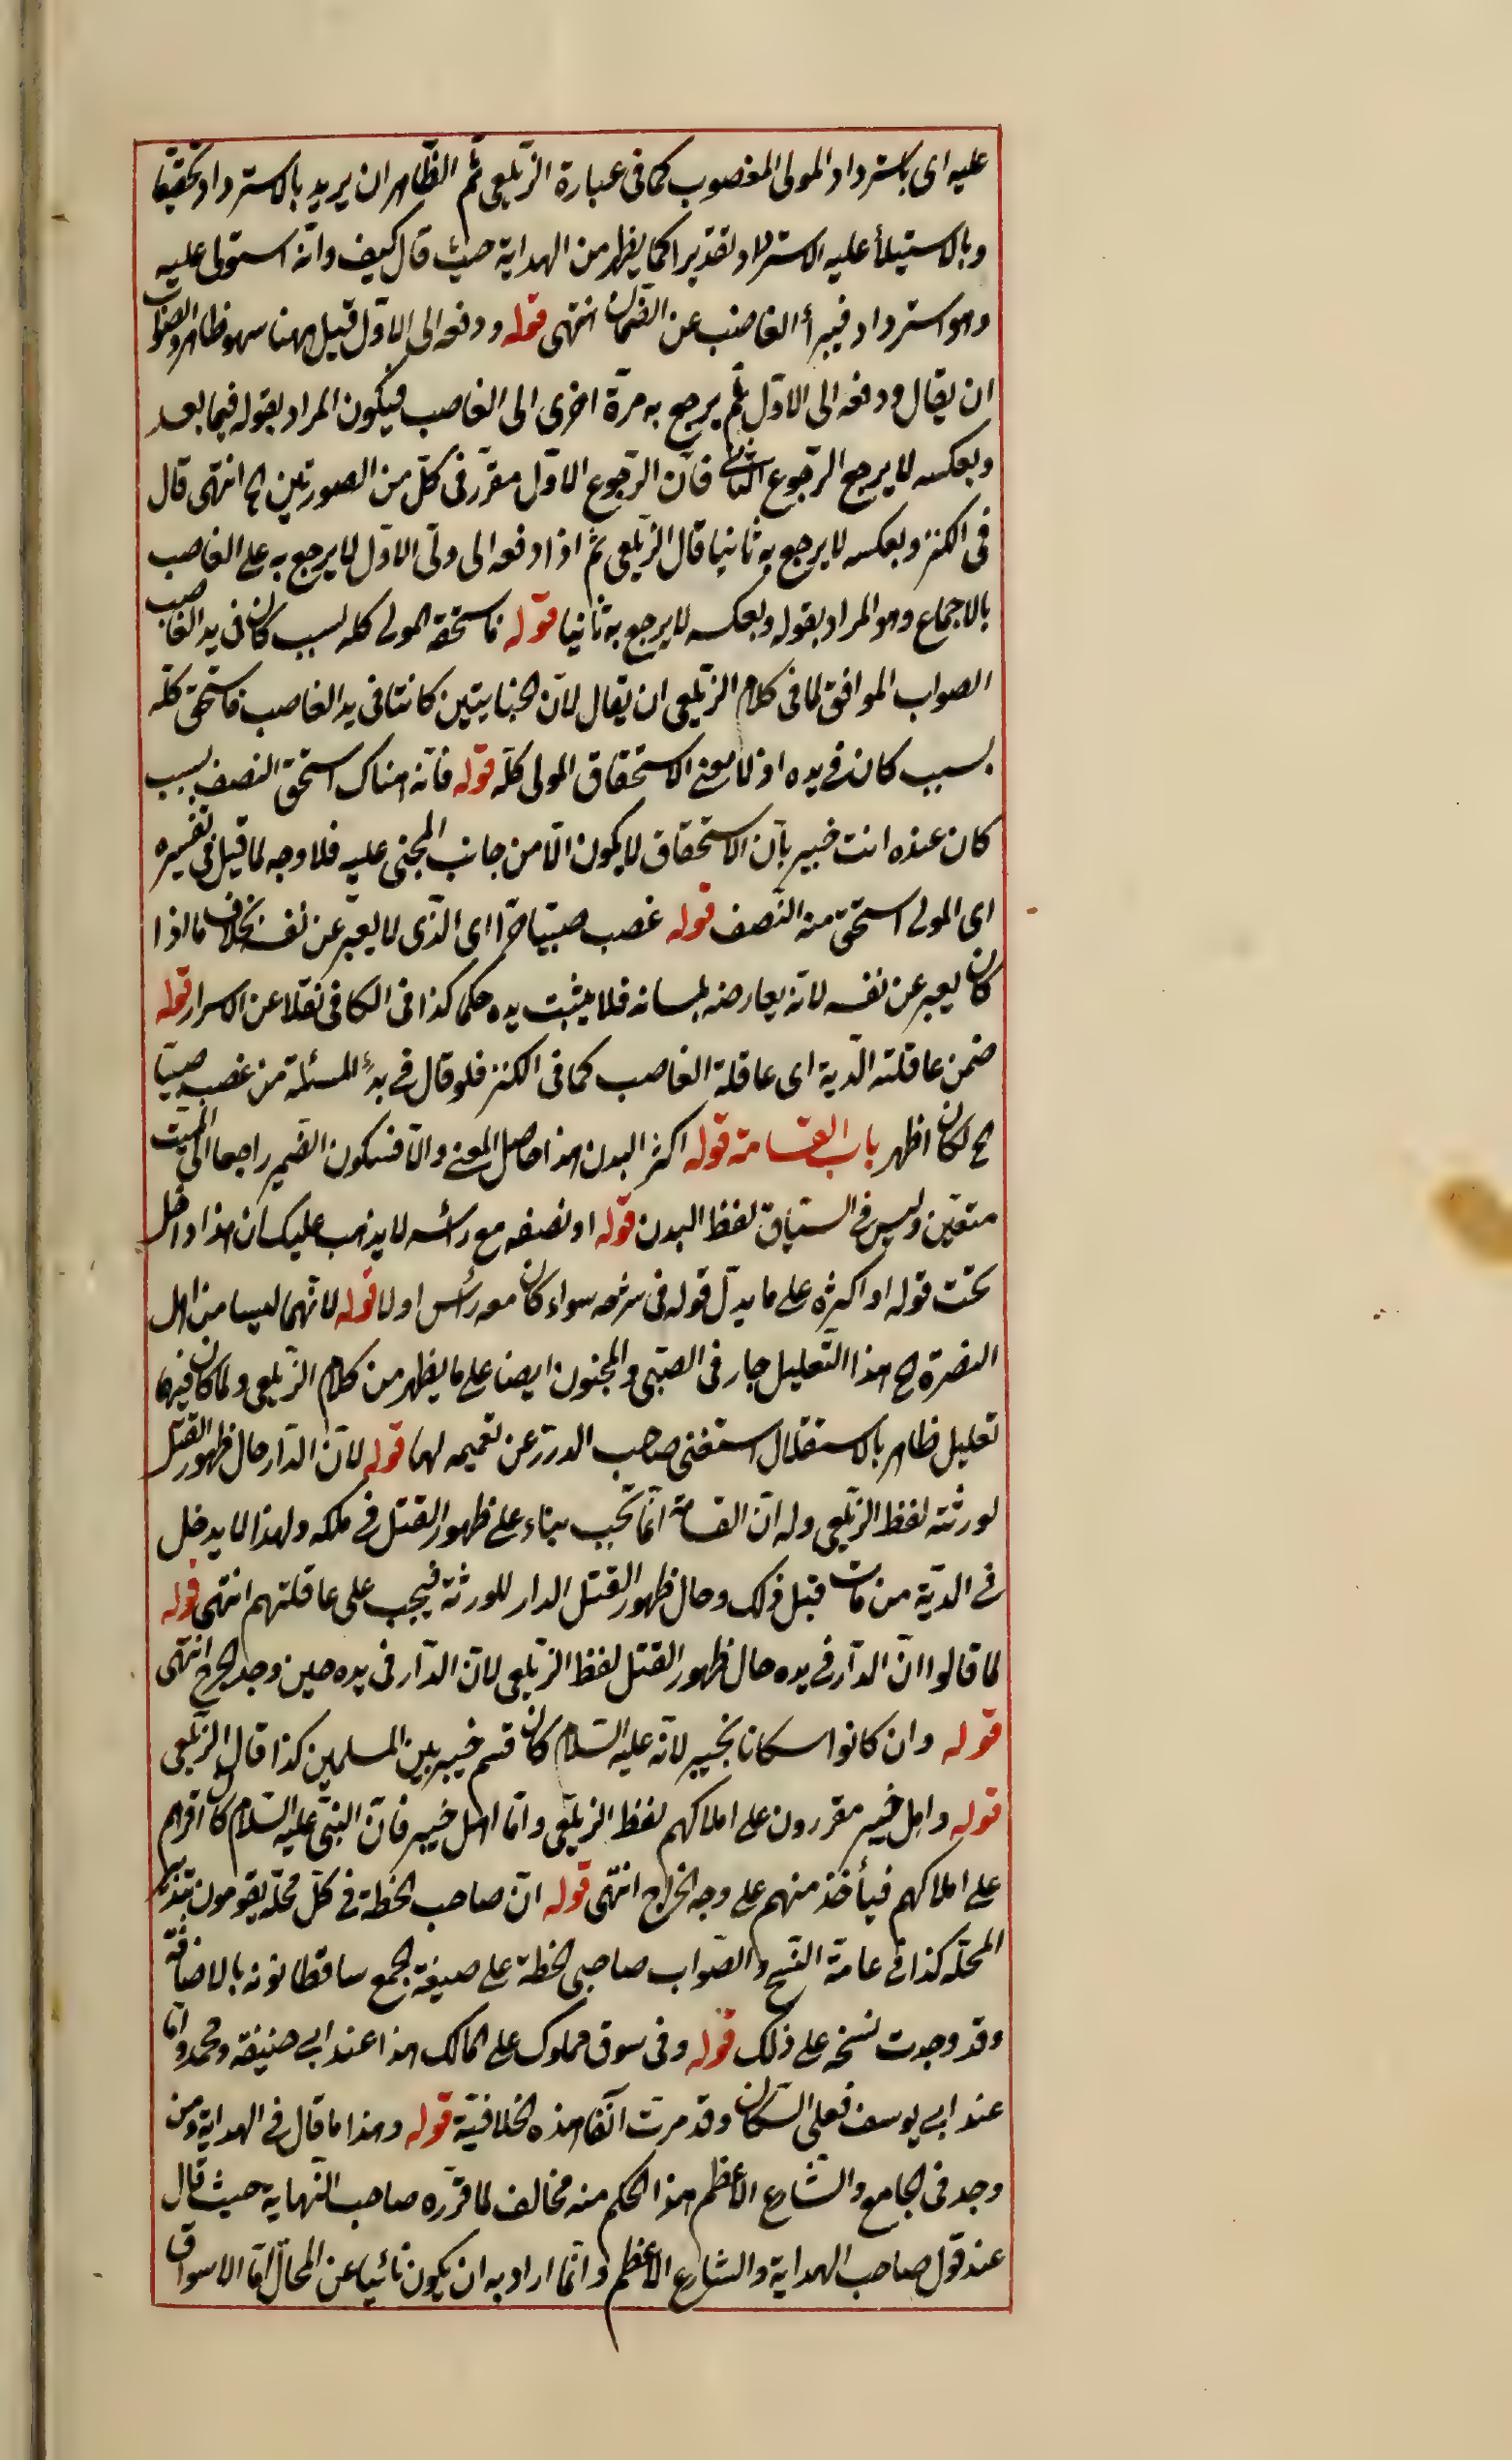 عليه اى باسترداد المولى المغصوب كما فى عبارة الزيلعى ثم الظاهر ان يريد بالاسترداد تحقيقا
وبالاستيلأ عليه الاسترداد تقديرا كما يظهر من الهداية حيث قال كيف وانه استولى عليه
وهو استرداد فيبرأ الغاصب عن الضمان انتهى قوله ودفعه الى الاول قيل ههنا سهو ظاهر والصواب
ان يقال ودفعه الى الاول ثم يرجع به مرة اخرى الى الغاصب فيكون المراد بقوله فيما بعد
وبعكسه لا يرجع الرجوع الثانى فان الرجوع الاول مقرر فى كل من الصورتين انتهى قال
فى الكنز وبعكسه لا يرجع به ثانيا قال الزيلعى ثم اذا دفعه الى ولى الاول لا يرجع به على الغاصب
بالاجماع وهو المراد بقوله وبعكسه لا يرجع به ثانيا قوله فاستحقه المولى كله بسبب كان فى يد الغاصب
الصواب الموافق لما فى كلام الزيلعى ان يقال لان الجنايتين كانتا فى يد الغاصب فاستحق كله
بسبب كان فى يده اذ لا معنى لاستحقاق المولى كله قوله فانه هناك استحق النصف بسبب
كان عنده انت خبير بان الاستحقاق لا يكون الا من جانب المجنى عليه فلا وجه لما قيل فى تفسيره
اى المولى استحق منه النصف قوله غصب صبيا حرا اى الذى لا يعبر عن نفسه بخلاف ما اذا
كان يعبر عن نفسه لانه يعارضه بلسانه فلا يثبت يده حكما كذا فى الكافى نقلا عن الاسرار قوله
ضمن عاقلته الدية اى عاقلة الغاصب كما فى الكنز فلو قال فى بدء المسئلة من غصب صبيا
ح لكان اظهر باب القسامة قوله اكثر البدن هذا حاصل المعنى والا فسيكون الضمير راجعا الى الميت
متعين وليس فى السياق لفظ البدن قوله او نصفه مع رأسه لا يذهب عليك ان هذا داخل
تحت قوله او اكثره على ما يدل قوله فى شرحه سواء كان معه رأس او لا قوله لانهما ليسا من اهل
النصرة ح هذا التعليل جار فى الصبى والمجنون ايضا على ما يظهر من كلام الزيلعى ولما كان فيهما
تعليل ظاهر بالاستقلال استغنى صاحب الدرر عن تعميمه لهما قوله لان الدار حال ظهور القتل
لورثته لفظ الزيلعى وله ان القسامة انما تجب بناء على ظهور القتل فى ملكه ولهذا لا يدخل
فى الدية من مات قبل ذلك وحال ظهور القتل الدار للورثة فيجب على عاقلتهم انتهى قوله
لما قالوا ان الدار فى يده حال ظهور القتل لفظ الزيلعى لان الدار فى يده حين وجد الجرح انتهى
قوله وان كانوا سكانا بخيبر لانه عليه السلام كان قسم خيبر بين المسلمين كذا قال الزيلعى
قوله واهل خيبر مقررون على املاكهم لفظ الزيلعى واما اهل خيبر فان النبى عليه السلام كان اقرهم
على املاكهم فيأخذ منهم على وجه الخراج انتهى قوله ان صاحب الخطة فى كل محلة يقومون بتدبير
المحلة كذا فى عامة النسخ والصواب صاحبى الخطة على صيغة الجمع ساقطا نونه بالاضافة
وقد وجدت نسخة على ذلك قوله وفى سوق مملوك على المالك هذا عند ابى حنيفة ومحمد واما
عند ابى يوسف فعلى السكان وقد مرت آنفا هذه الخلافية قوله وهذا ما قال فى الهداية ومن
وجد فى الجامع والشارع الاعظم هذا الحكم منه مخالف لما قرره صاحب النهاية حيث قال
عند قول صاحب الهداية والشارع الاعظم وانما اراد به ان يكون نائيا عن المحال اما الاسواق